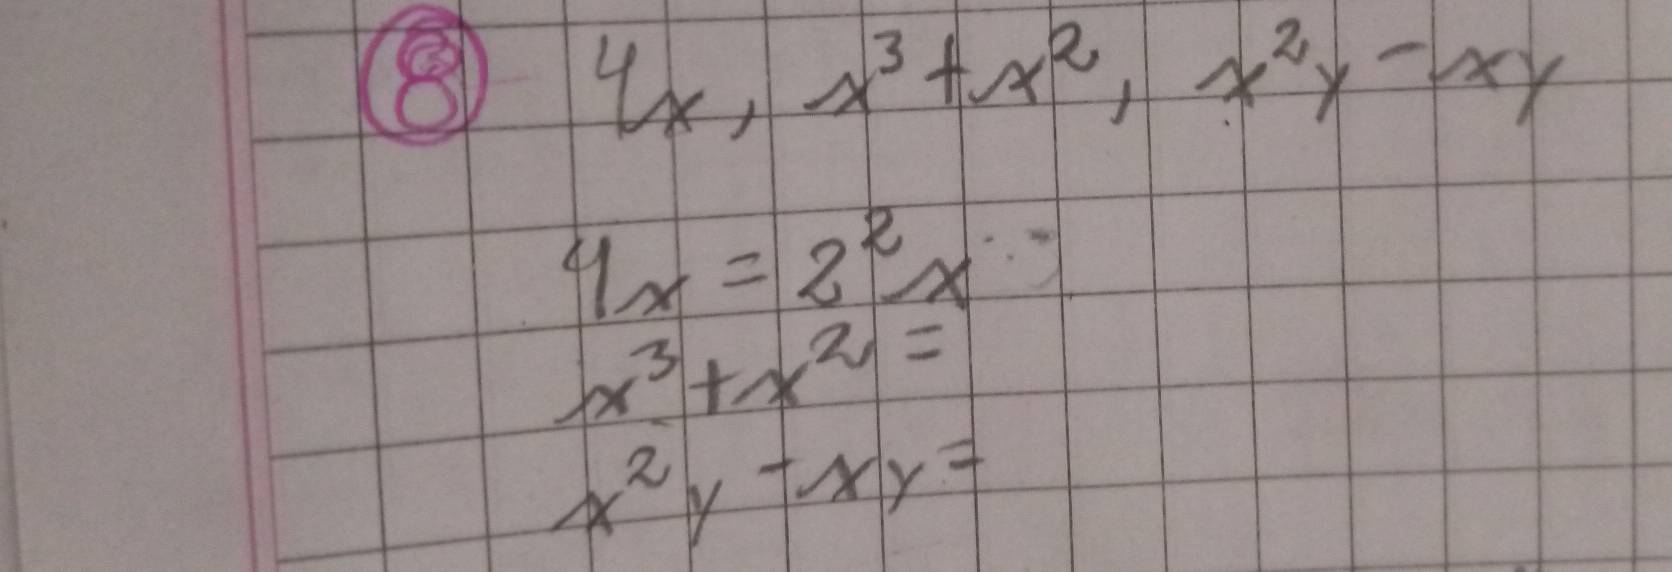 ⑧ 4x, x³+x², x²y-xy
4x = 2²x
x³+x² =
x²y-xy =